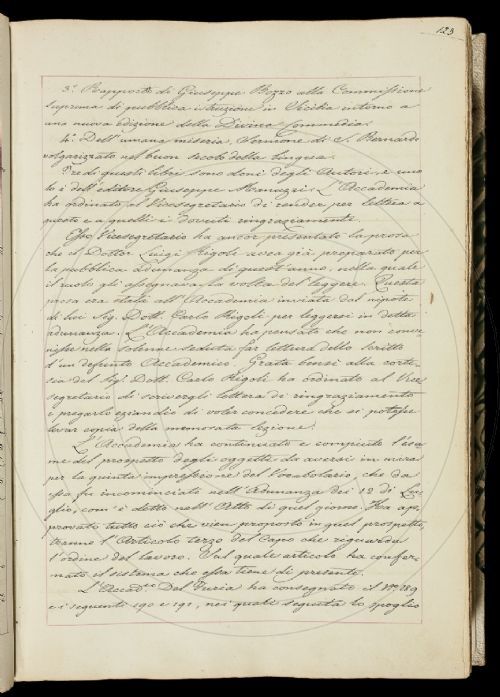 123
3.° Rapporto di Giuseppe Bozzo alla Commissione
suprema di pubblica istruzione in Sicilia intorno a
una nuova edizione della Divina Commedia.
4.° Dell'umana miseria, Sermone di S. Bernardo
volgarizzato nel buon secolo della lingua.
Tre di questi libri sono doni degli Autori, e uno
lo è dell'editore Giuseppe Manuzzi. L'Accademia
ha ordinato al Vicesegretario di render per lettera a
questo e a quelli i dovuti ringraziamenti.
Esso Vicesegretario ha ancor presentato la prosa
che il Dottor Luigi Rigoli avea già preparato per
la pubblica adunanza di quest'anno, nella quale
il ruolo gli assegnava la volta del leggere. Questa
prosa era stata all'Accademia inviata dal nipote
di lui Sig. Dott. Carlo Rigoli per leggersi in detta
adunanza. L'Accademia ha pensato che non conve-
nisse nella solenne seduta far lettura dello scritto
d'un defunto Accademico. Grata bensì alla corte-
sia del Sig. Dott. Carlo Rigoli ha ordinato al Vice
segretario di scrivergli lettera di ringraziamento
e pregarlo eziandio di voler concedere che si potesse
levar copia della memorata lezione.
L'Accademia ha continuato e compiuto l'esa-
me del prospetto degli oggetti da aversi in mira
per la quinta impressione del Vocabolario, che da
essa fu incominciato nell'Adunanza dei 12 di Lu-
glio, com'è detto nell'Atto di quel giorno. Ha ap-
provato tutto ciò che vien proposto in quel prospetto,
tranne l'Articolo terzo del Capo che riguarda
l'ordine del lavoro. Sul quale articolo ha confer-
mato il sistema che essa tiene di presente.
L'Accad.co Del Furia ha consegnato il N.° 189
e i seguenti 190 e 191, nei quali seguita lo spoglio